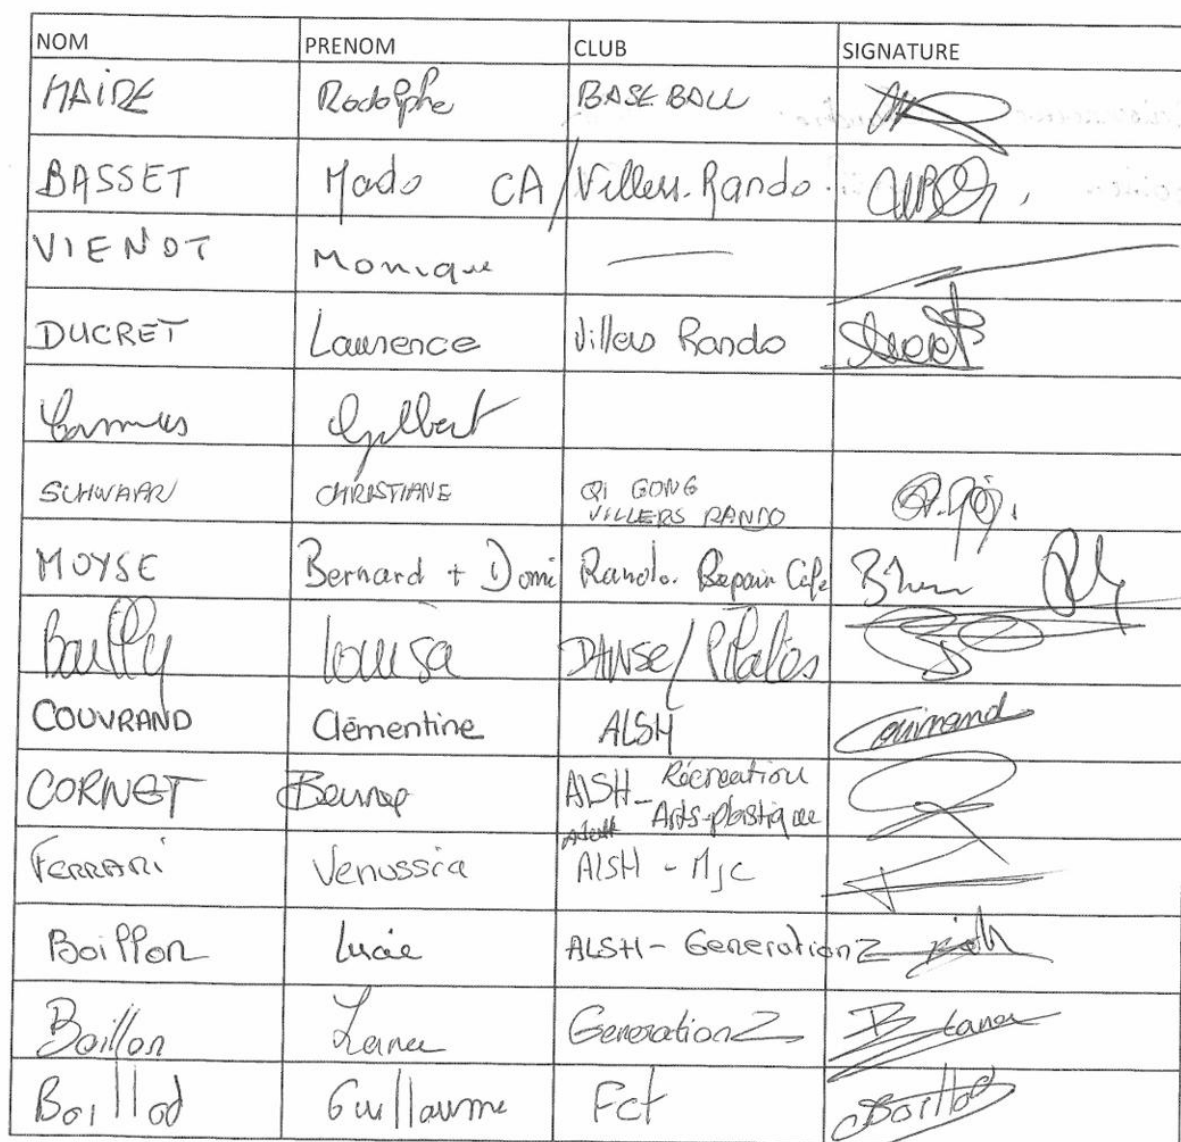 NOM PRENOM CLUB SIGNATURE
MAIRE Rodolphe BASE BALL
BASSET Mado CA/Villers. Rando.
VIENOT Monique —
DUCRET Laurence Villers Rando
Camus Gilbert
SCHWAAR CHRISTIANE QI GONG
VILLERS RANDO
MOYSE Bernard + Domi Rando. Repair Cafe
Bailly Louisa DANSE/Pilates
COUVRAND Clémentine ALSH
CORNET ALSH - Récréation
Adult Arts-plastique
FERRARI Venussia ALSH - MJC
Boillon Lucie ALSH - Generation Z
Boillon Generation Z
Boillod Guillaume Fct Boillod